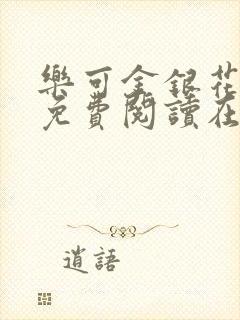 樂可金銀花
免費閱讀在
逍語